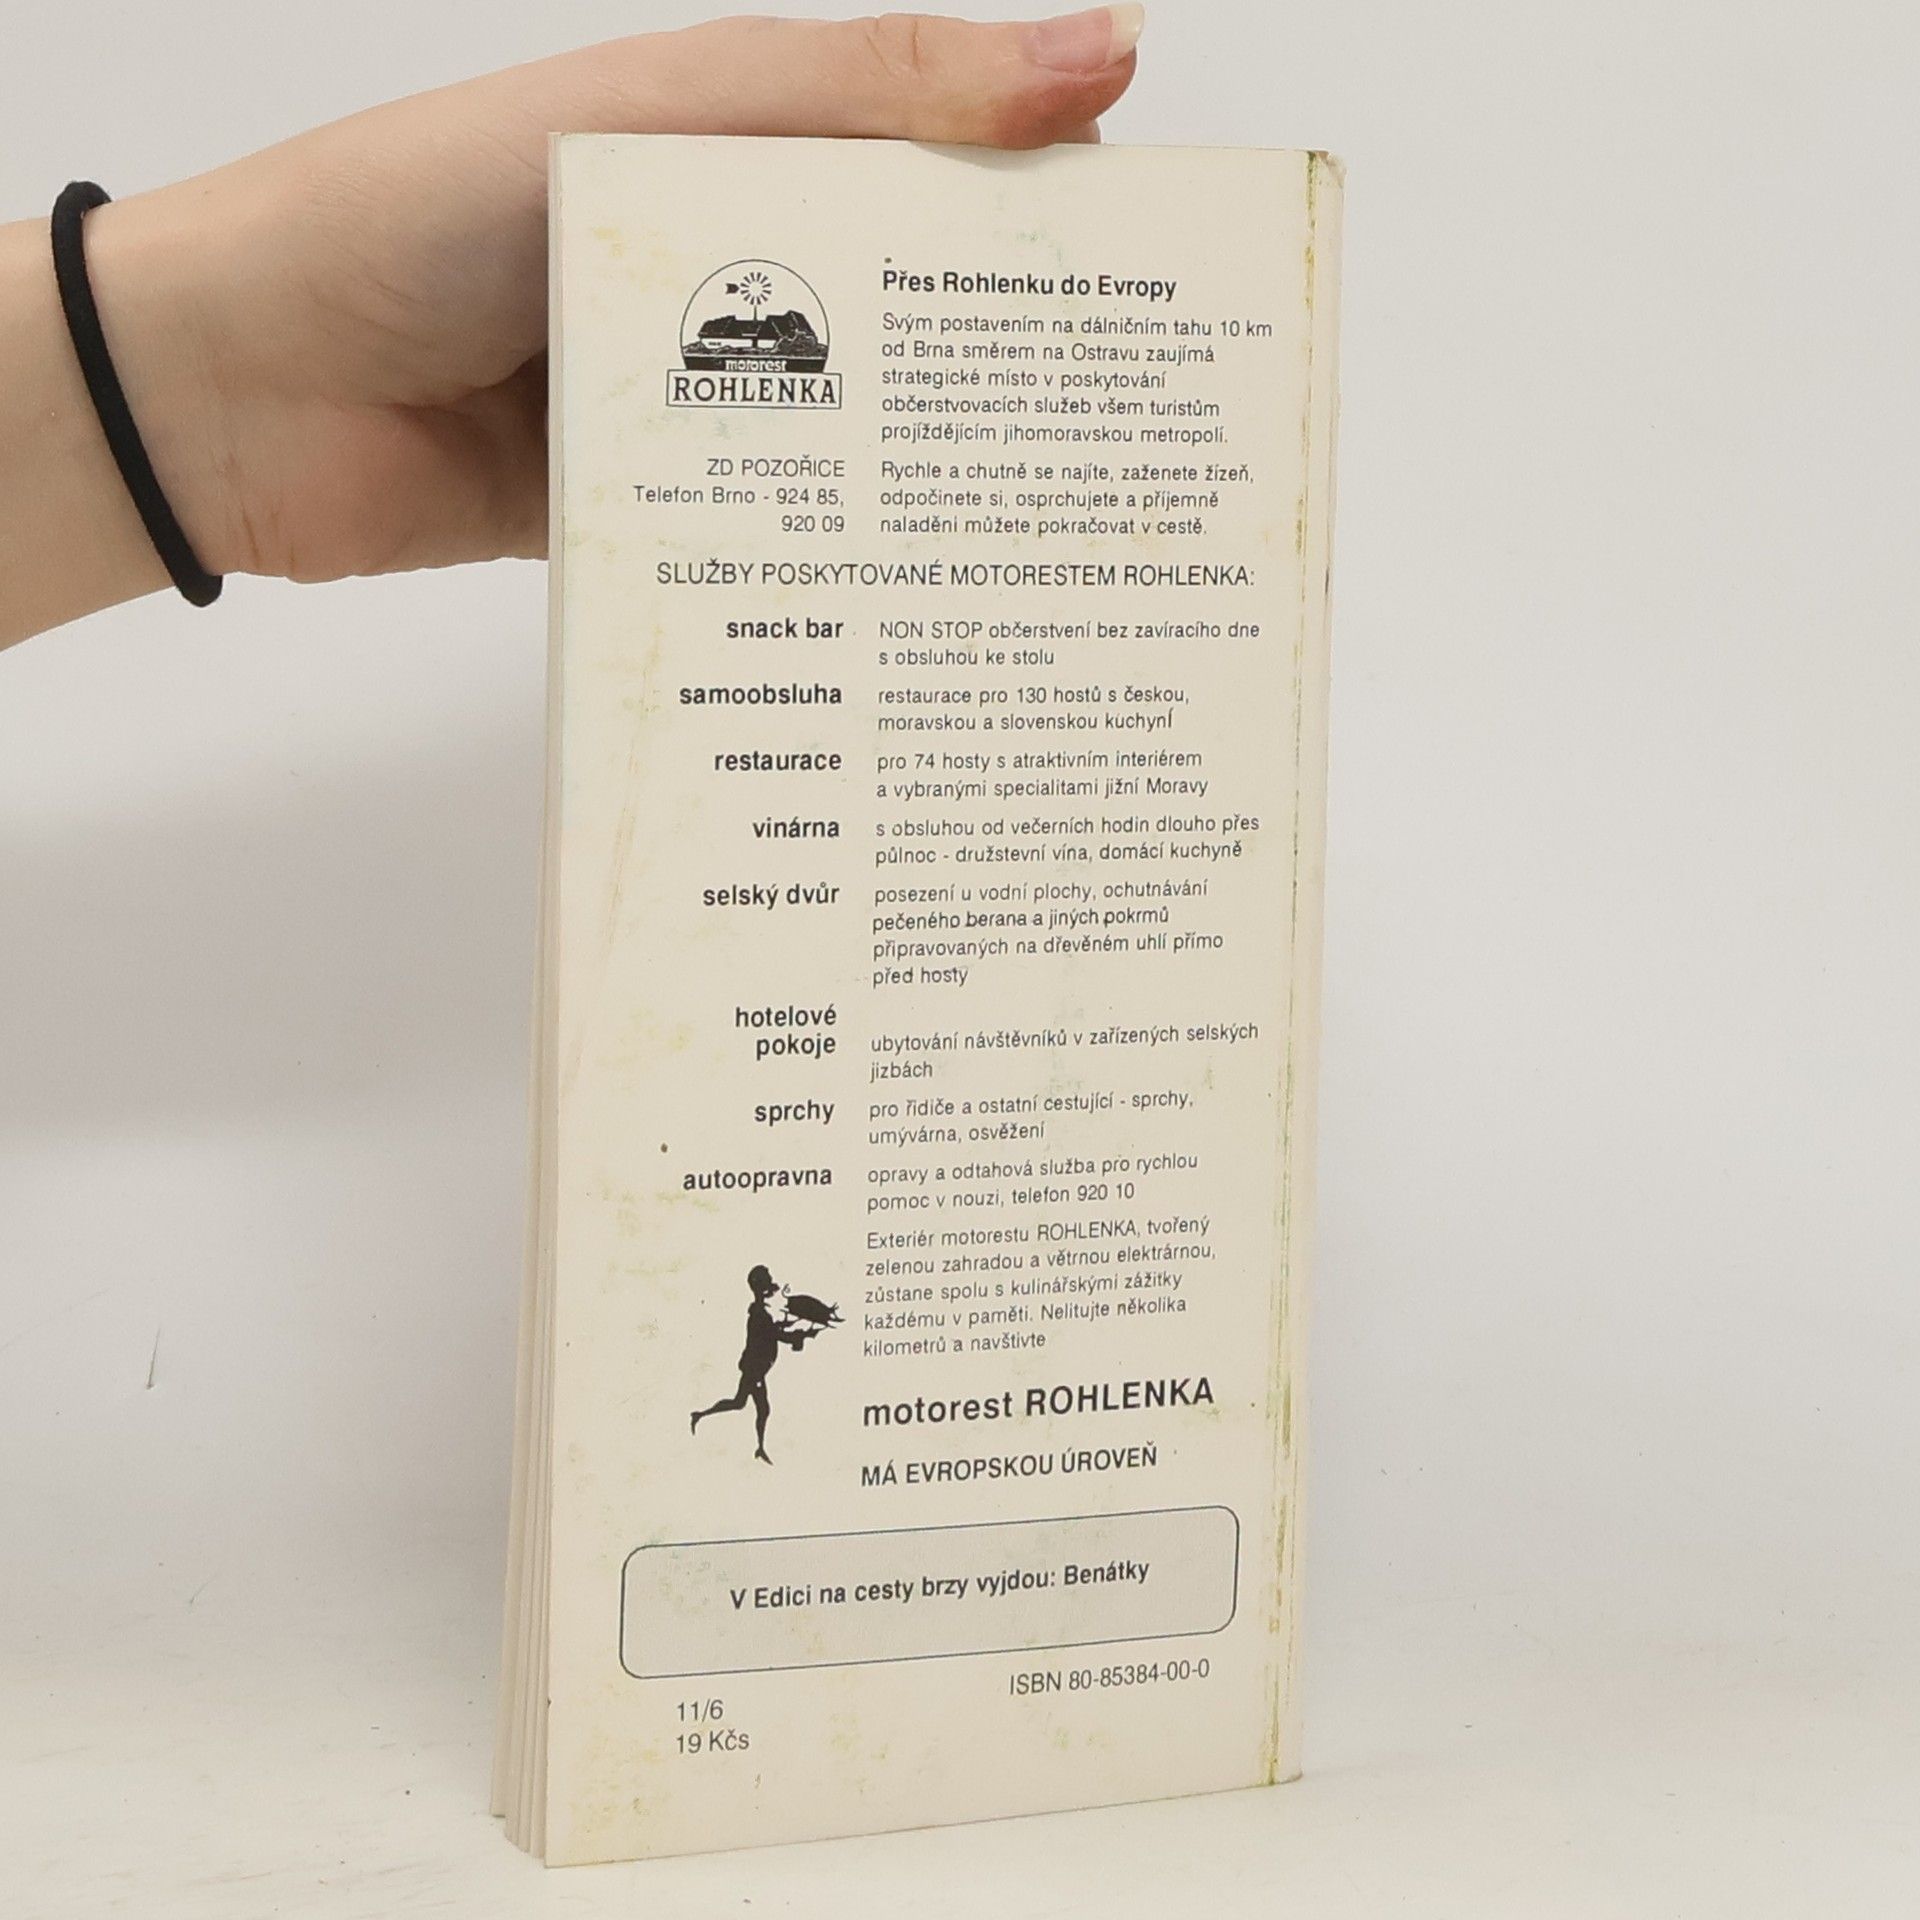 motorest
ROHLENKA
ZD POZOŘICE
Telefon Brno - 924 85,
920 09
Přes Rohlenku do Evropy
Svým postavením na dálničním tahu 10 km
od Brna směrem na Ostravu zaujímá
strategické místo v poskytování
občerstvovacích služeb všem turistům
projíždějícím jihomoravskou metropolí.
Rychle a chutně se najíte, zaženete žízeň,
odpočinete si, osprchujete a příjemně
naladěni můžete pokračovat v cestě.
SLUŽBY POSKYTOVANÉ MOTORESTEM ROHLENKA:
snack bar NON STOP občerstvení bez zavíracího dne
s obsluhou ke stolu
samoobsluha restaurace pro 130 hostů s českou,
moravskou a slovenskou kuchyní
restaurace pro 74 hosty s atraktivním interiérem
a vybranými specialitami jižní Moravy
vinárna s obsluhou od večerních hodin dlouho přes
půlnoc - družstevní vína, domácí kuchyně
selský dvůr posezení u vodní plochy, ochutnávání
pečeného berana a jiných pokrmů
připravovaných na dřevěném uhlí přímo
před hosty
hotelové
pokoje ubytování návštěvníků v zařízených selských
jizbách
sprchy pro řidiče a ostatní cestující - sprchy,
umývárna, osvěžení
autoopravna opravy a odtahová služba pro rychlou
pomoc v nouzi, telefon 920 10
Exteriér motorestu ROHLENKA, tvořený
zelenou zahradou a větrnou elektrárnou,
zůstane spolu s kulinářskými zážitky
každému v paměti. Nelitujte několika
kilometrů a navštivte
motorest ROHLENKA
MÁ EVROPSKOU ÚROVEŇ
V Edici na cesty brzy vyjdou: Benátky
ISBN 80-85384-00-0
11/6
19 Kčs